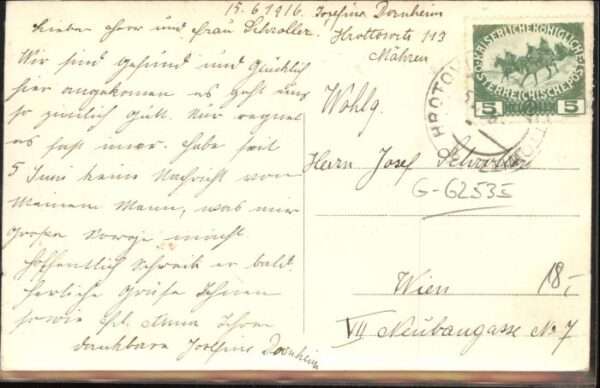 15.6.1916. Josefina Dornheim
Hrottowitz 113
Mähren
Lieber Herr und Frau Schroller.
Wir sind Gesund und Glücklich
hier angekomen es geht uns
so zimlich Gutt. Nur regnet
es fast imer. habe seit
5 Juni keine Nachricht von
Meinem Mann, was mir
große Sorge macht.
Hoffentlich schreib er bald.
Herliche Grüße Ihnen
sowie Frl. Anna Ihre
dankbare Josefine Dornheim
KAISERLICHE KÖNIGLICHE
ÖSTERREICHISCHE POST
5 5
HROTO
Wohlg.
Herrn Josef Schroller
G-6253
Wien
18,-
VII Neubaugasse No 7